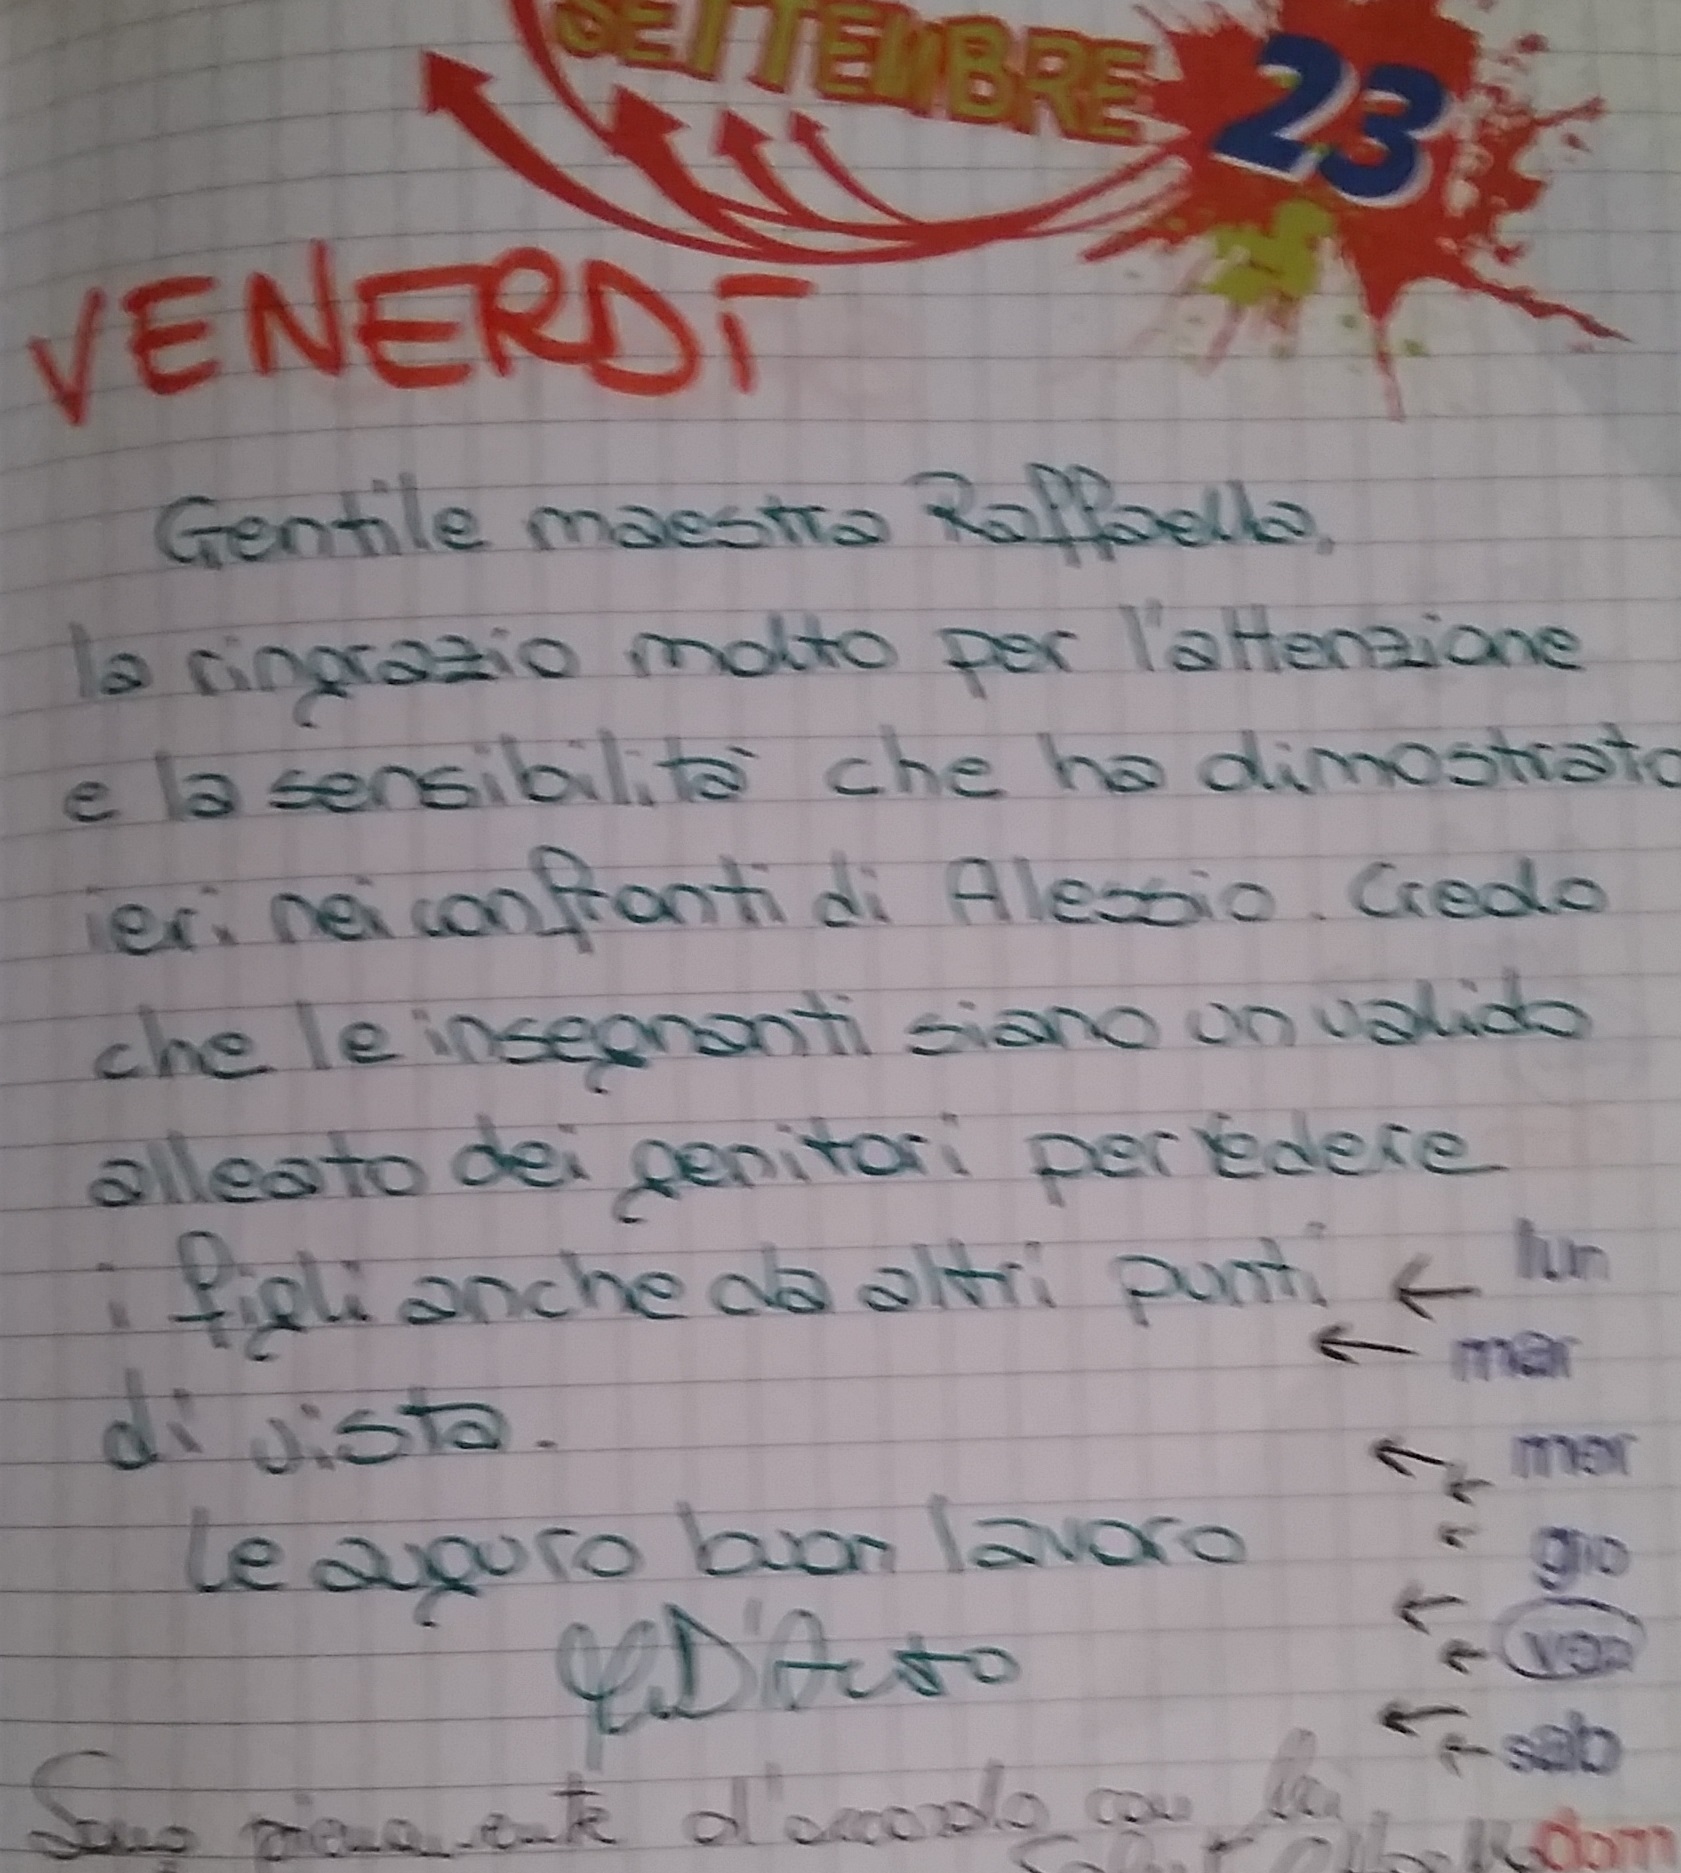 SETTEMBRE 23
VENERDÌ
Gentile maestra Raffaella,
la ringrazio molto per l'attenzione
e la sensibilità che ha dimostrato
ieri nei confronti di Alessio. Credo
che le insegnanti siano un valido
alleato dei genitori per vedere
i figli anche da altri punti
di vista.
Le auguro buon lavoro
D'Auto
lun
mar
mer
gio
ven
sab
dom
Sono pienamente d'accordo con lei